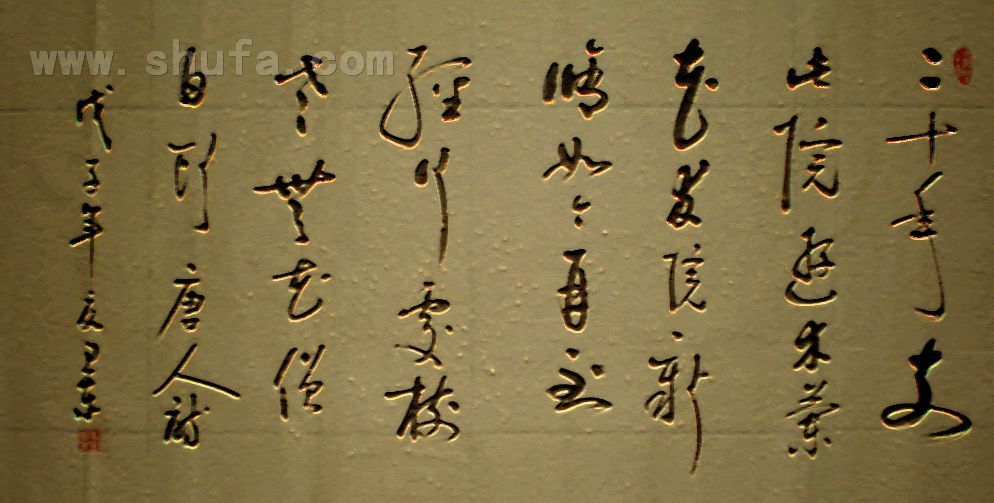 www.shufa.com
二十年前
此院遊木蘭
花發院新
修如今再到
經行處樹
老無花僧
白頭 唐人詩
戊子年夏